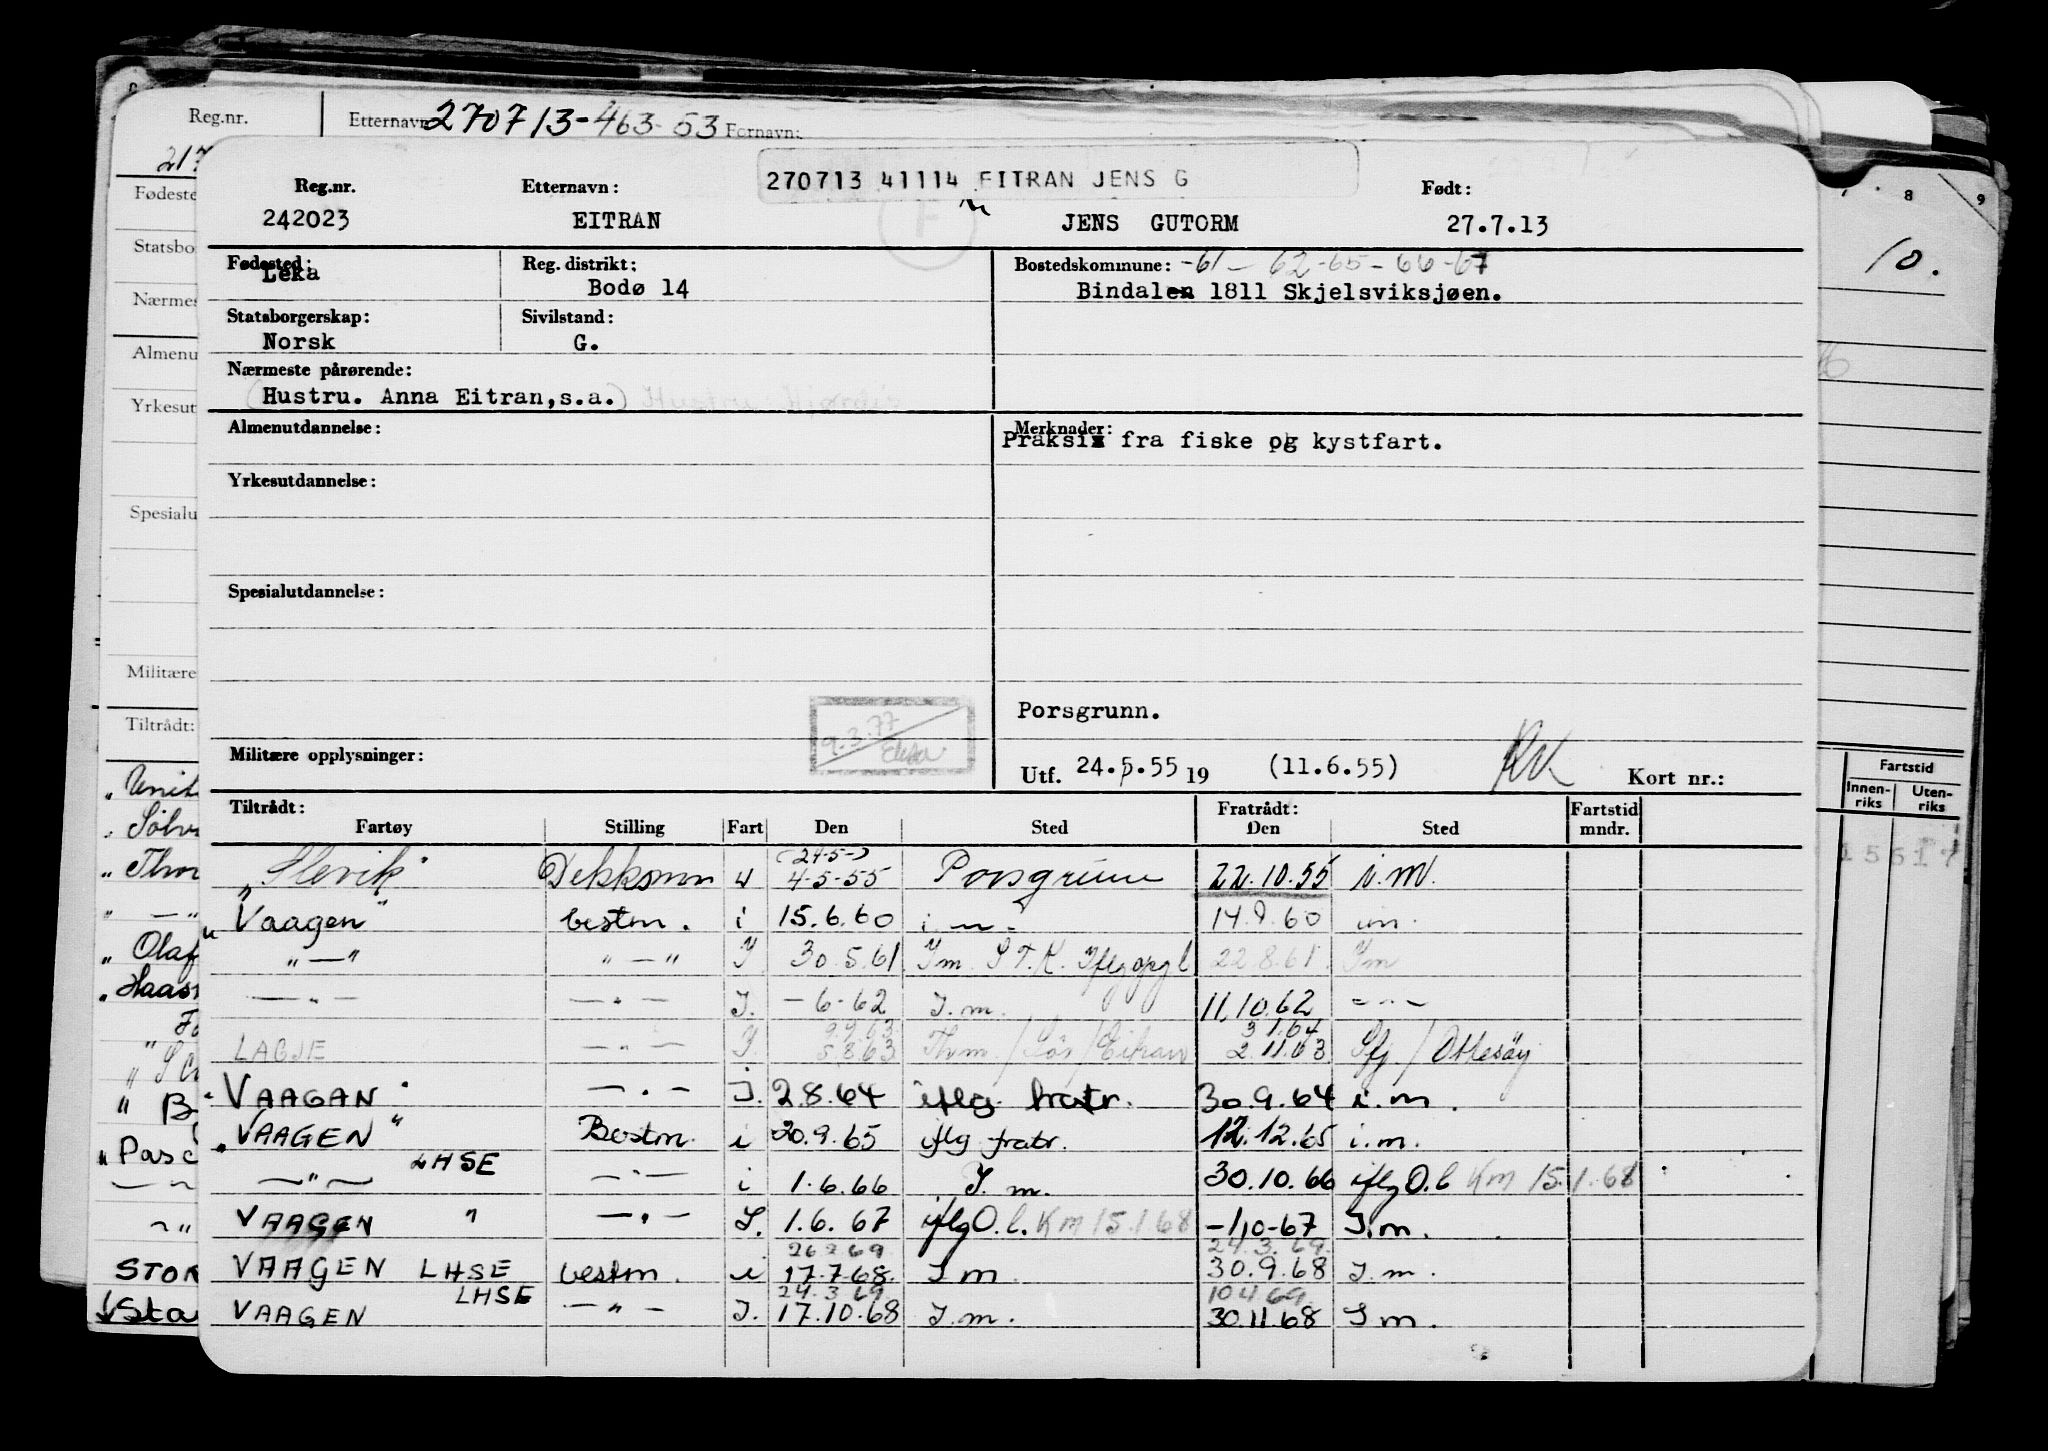 Reg.nr. Etternavn 270713-463-53 Fornavn:
270713 41114 EITRAN JENS G
Reg.nr. Etternavn: Født:
242023 EITRAN JENS GUTORM 27.7.13
Fødested: Reg. distrikt: Bostedskommune: -61-62-65-66-67
Leka Bodø 14 Bindalen 1811 Skjelsviksjøen.
Statsborgerskap: Sivilstand:
Norsk G.
Nærmeste pårørende:
(Hustru. Anna Eitran,s.a.) Hustru: Hjørdis
Almenutdannelse: Merknader:
Praksis fra fiske og kystfart.
Yrkesutdannelse:
Spesialutdannelse:
Porsgrunn.
9.3.77
Militære opplysninger: Utf. 24.5.55 19 (11.6.55) Kort nr.:
Tiltrådt: Fratrådt: Fartstid
Fartøy Stilling Fart Den Sted Den Sted mndr.
(24-5-)
"Slevik" Dekksmn u 4-5-55 Porsgrunn 22.10.55 i.m.
"Vaagen" bestm. i 15.6.60 i.m. 14.9.60 i.m.
" — " " — " I 30.5.61 I.m. S.T.K. Iflg oppg 22.8.61 I m
— " — — " — I. - 6-62 I.m. 11.10.62 — " —
9.9.63 3.1.64
LAGJE — " — I 5.8.63 2.11.63 Sfj/Ottesøy
"VAAGAN" — " — I. 2.8.64 iflg. fratr. 30.9.64 i.m.
"VAAGEN" Bestm. i 20.9.65 iflg fratr. 12.12.65 i.m.
LHSE
— " — — " — i 1.6.66 I.m. 30.10.66 iflg O.l KM 15.1.68
VAAGEN " — " — I. 1.6.67 iflg O.l. KM 15.1.68 -1.10-67 I.m.
26.2.69 24.3.69.
VAAGEN LHSE bestm. i 17.7.68. I m. 30.9.68 I.m.
LHSE 24.3.69 10.4.69.
VAAGEN — " — I. 17.10.68 I.m. 30.11.68 I m.
Fødeste
Statsbo
Nærmes
Almenu
Yrkesut
Spesialu
Militære
Tiltrådt:
"Olaf
"Pasc
STOR
Sta
8 9
10.
Fartstid
Innen- Uten-
riks riks